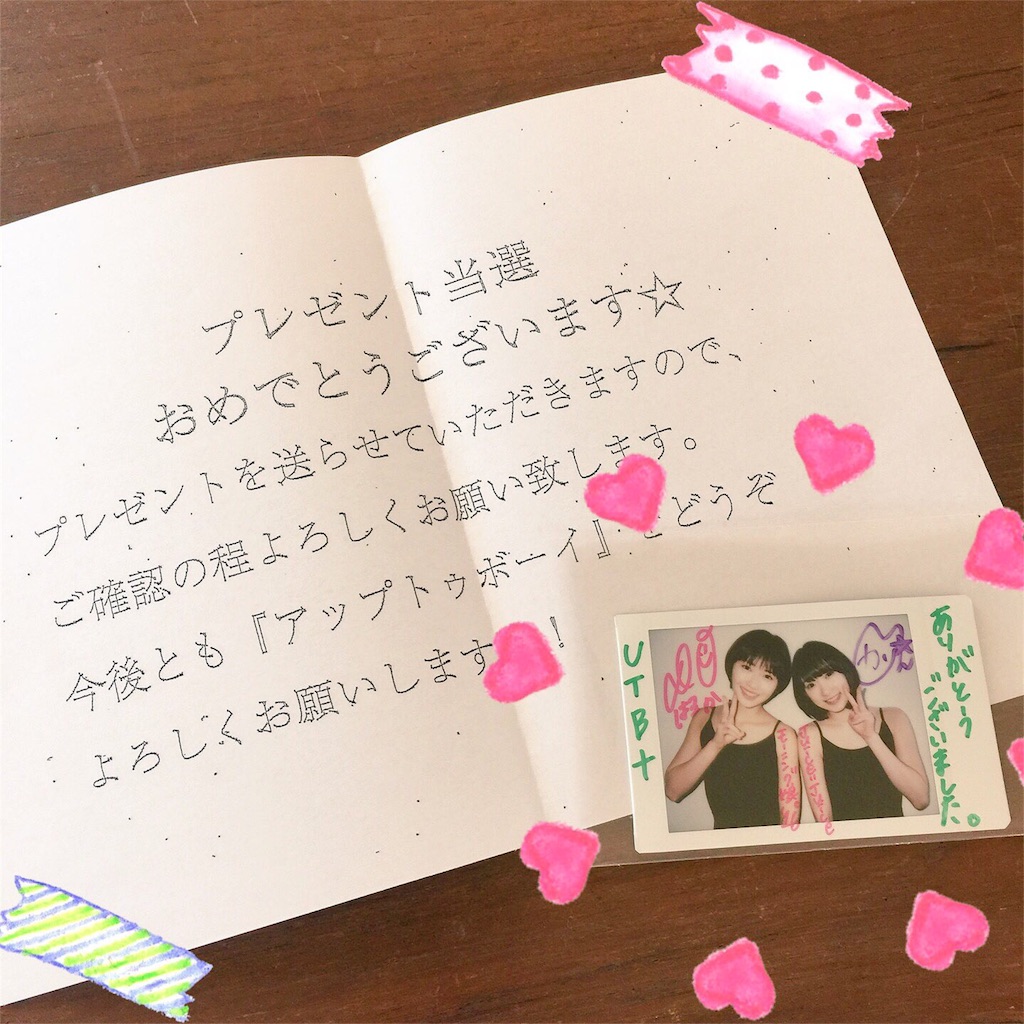 プレゼント当選
おめでとうございます☆
プレゼントを送らせていただきますので、
ご確認の程よろしくお願い致します。
今後とも『アップトゥボーイ』をどうぞ
よろしくお願いします!
UTB+
モーニング娘。
Juice=Juice
ありがとう
ございました。